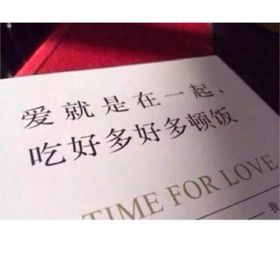 爱就是在一起，
吃好多好多顿饭
TIME FOR LOVE
我